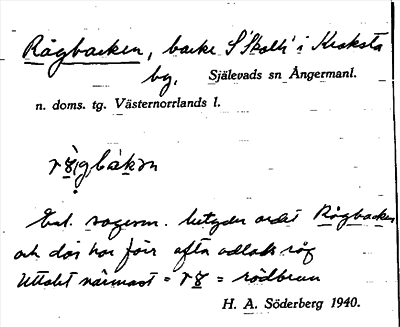 Rågbacken, backe S Skolh i Kroksta
by, Själevads sn Ångermanl.
n. doms. tg. Västernorrlands l.
Enl. sagesm. betyder ordet Rågbacken
och där har förr ofta odlats råg
Uttalet närmast = = rödbrun
H. A. Söderberg 1940.